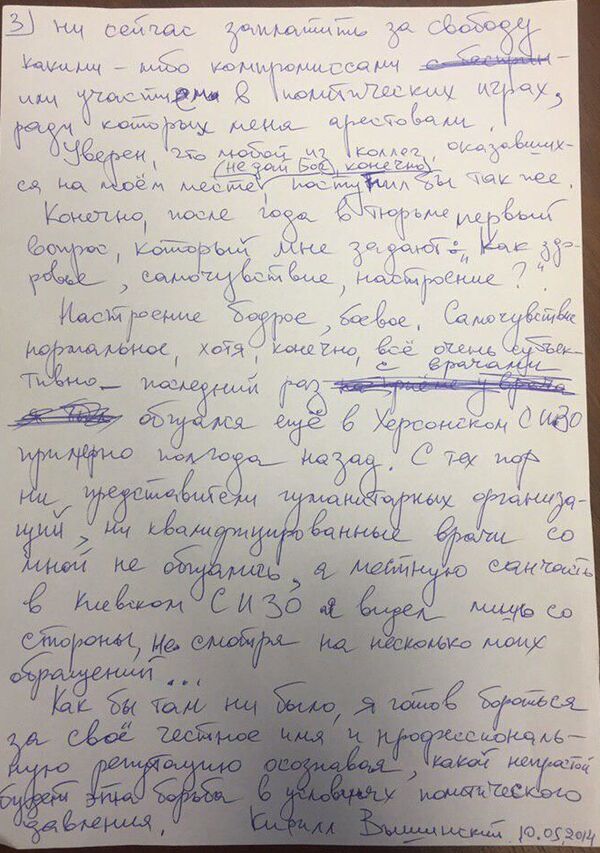 3) ни сейчас заплатить за свободу
какими-либо компромиссами
или участием в политических играх,
ради которых меня арестовали.
Уверен, что любой из коллег, оказавших-
(не дай Бог, конечно)
ся на моём месте, поступил бы так же.
Конечно, после года в тюрьме первый
вопрос, который мне задают: „Как здо-
ровье, самочувствие, настроение?"
Настроение бодрое, боевое. Самочувствие
нормальное, хотя, конечно, всё очень субъек-
с врачами
тивно – последний раз
общался ещё в Херсонском СИЗО
примерно полгода назад. С тех пор
ни представители гуманитарных организа-
ций, ни квалифицированные врачи со
мной не общались, а местную санчасть
в Киевском СИЗО я видел лишь со
стороны, не смотря на несколько моих
обращений...
Как бы там ни было, я готов бороться
за своё честное имя и профессиональ-
ную репутацию осознавая, какой непростой
будет эта борьба в условиях политического
давления. Кирилл Вышинский 10.05.2019